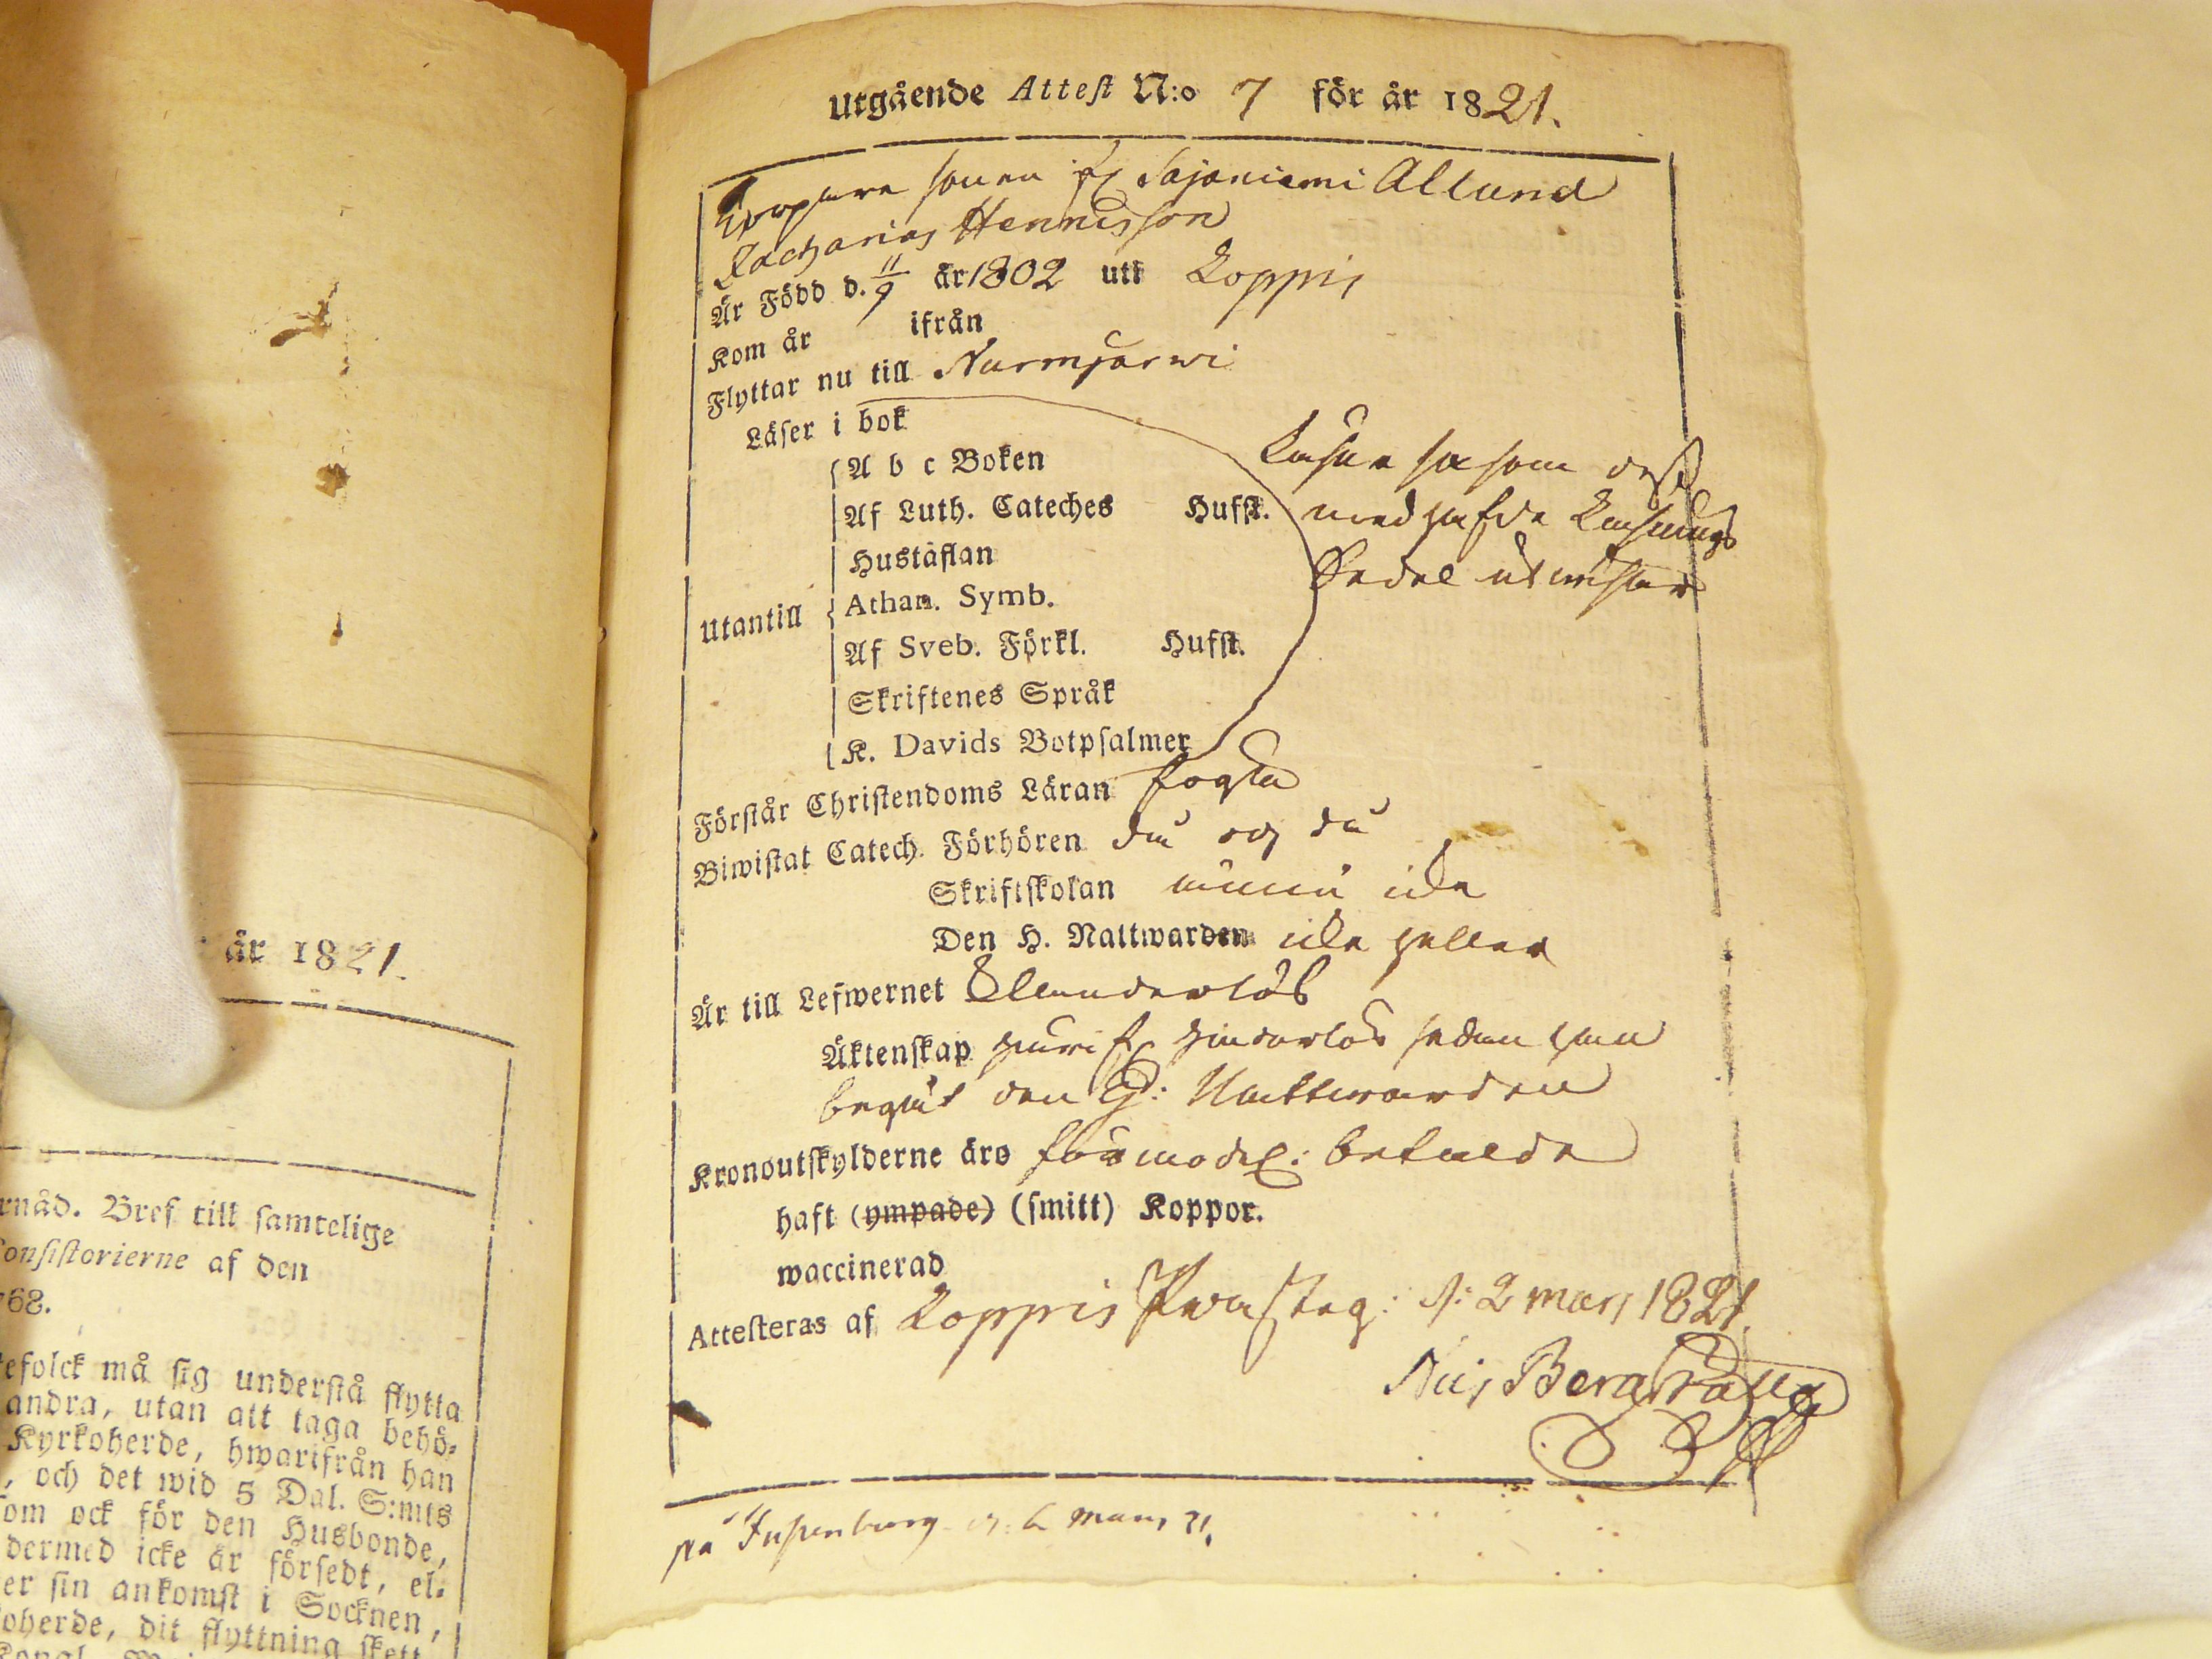 år 1821.
rnåd. Bref till samtelige
Consistorierne af den
768.
tefolck må sig understå flytta
andra, utan att taga behö-
Kyrkoherde, hwarifrån han
, och det wid 5 Dal. S:mts
om ock för den Husbonde,
dermed icke är försedt, el-
er sin ankomst i Socknen,
oherde, dit flyttning skett
Utgående Attest N:o 7 för år 1821.
sonen fr Sajaniemi Allund
Zacharias Henricsson
Är Född d. 11/9 år 1802 uti Loppis
Kom år ifrån
Flyttar nu till Nurmjärwi
Läser i bok
A b c Boken
Läser så som dess
Af Luth. Cateches Hufst.
medhafde Läsnings
Hustaflan
Sedel utwisar
Utantill
Athan. Symb.
Af Sveb. Förkl. Hufst.
Skriftenes Språk
K. Davids Botpsalmer
Förstår Christendoms Läran
Biwistat Catech. Förhören då och då
Skriftskolan ännu icke
Den H. Nattwarden icke heller
Är till Lefwernet Klanderlös
Äktenskap hinderlös sedan han
begått den H: Nattwarden
Kronoutskylderne äro förmodel: betalde
haft (ympade) (smitt) Koppor.
waccinerad
Attesteras af Loppis Præsteg: d: 2 mars 1821.
Nils Bergsträhle
på d: 6 mars 21.